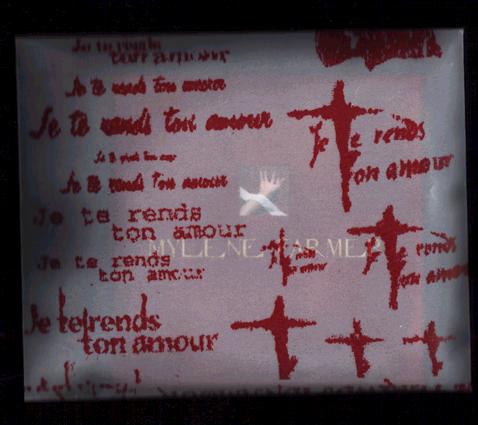 Je te rends
ton amour
Je te rends ton amour
Je te rends ton amour
Je te rends
ton amour
Je te rends ton amour
Je te rends
ton amour
MYLENE FARMER
Je te rends
ton amour
Je te rends
ton amour
Je te rends
ton amour